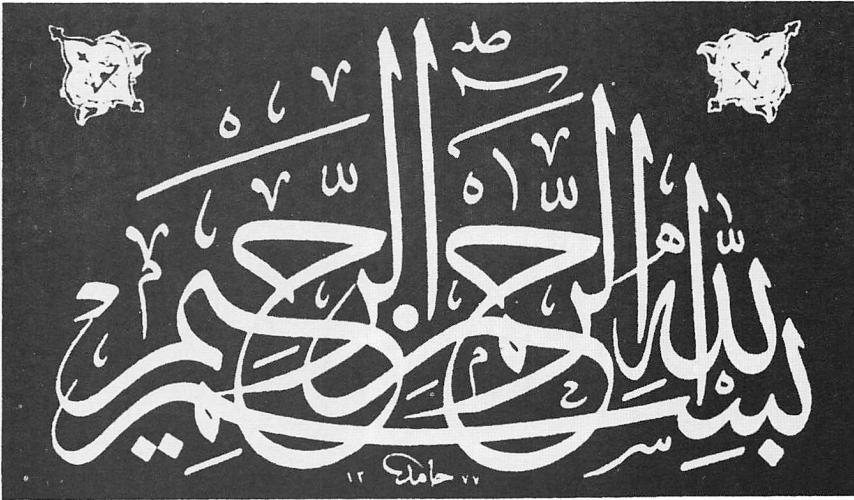 بِسْمِ اللّٰهِ الرَّحْمٰنِ الرَّحِيمِ
١٣ حامد ٧٧